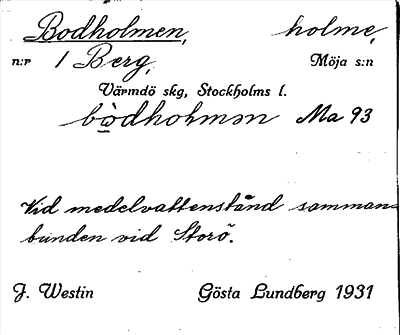 Bodholmen, holme,
n:r 1 Berg, Möja s:n
Värmdö skg, Stockholms l.
bòdhoḷmən Ma 93
Vid medelvattenstånd samman-
bunden vid Storö.
J. Westin Gösta Lundberg 1931